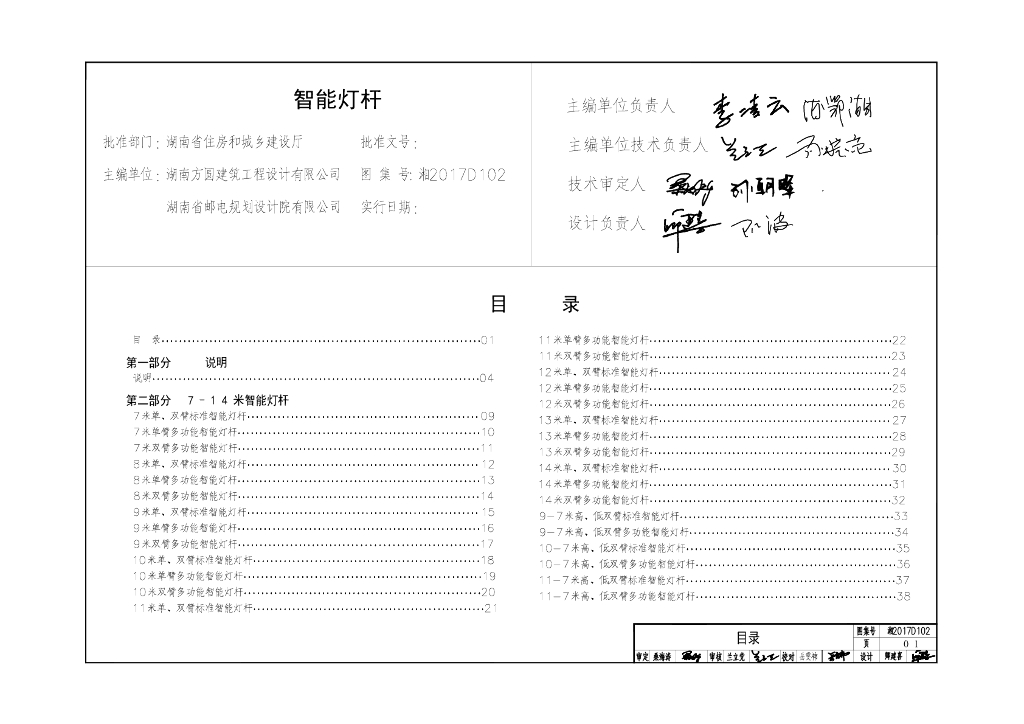 智能灯杆
批准部门：湖南省住房和城乡建设厅 批准文号：
主编单位：湖南方圆建筑工程设计有限公司 图 集 号：湘2017D102
湖南省邮电规划设计院有限公司 实行日期：
主编单位负责人
主编单位技术负责人
技术审定人
设计负责人
目 录
目 录 01
第一部分 说明
说明 04
第二部分 7-14 米智能灯杆
7米单、双臂标准智能灯杆 09
7米单臂多功能智能灯杆 10
7米双臂多功能智能灯杆 11
8米单、双臂标准智能灯杆 12
8米单臂多功能智能灯杆 13
8米双臂多功能智能灯杆 14
9米单、双臂标准智能灯杆 15
9米单臂多功能智能灯杆 16
9米双臂多功能智能灯杆 17
10米单、双臂标准智能灯杆 18
10米单臂多功能智能灯杆 19
10米双臂多功能智能灯杆 20
11米单、双臂标准智能灯杆 21
11米单臂多功能智能灯杆 22
11米双臂多功能智能灯杆 23
12米单、双臂标准智能灯杆 24
12米单臂多功能智能灯杆 25
12米双臂多功能智能灯杆 26
13米单、双臂标准智能灯杆 27
13米单臂多功能智能灯杆 28
13米双臂多功能智能灯杆 29
14米单、双臂标准智能灯杆 30
14米单臂多功能智能灯杆 31
14米双臂多功能智能灯杆 32
9-7米高、低双臂标准智能灯杆 33
9-7米高、低双臂多功能智能灯杆 34
10-7米高、低双臂标准智能灯杆 35
10-7米高、低双臂多功能智能灯杆 36
11-7米高、低双臂标准智能灯杆 37
11-7米高、低双臂多功能智能灯杆 38
目录
图集号 湘2017D102
页 01
审定 审核 兰立党 校对 设计